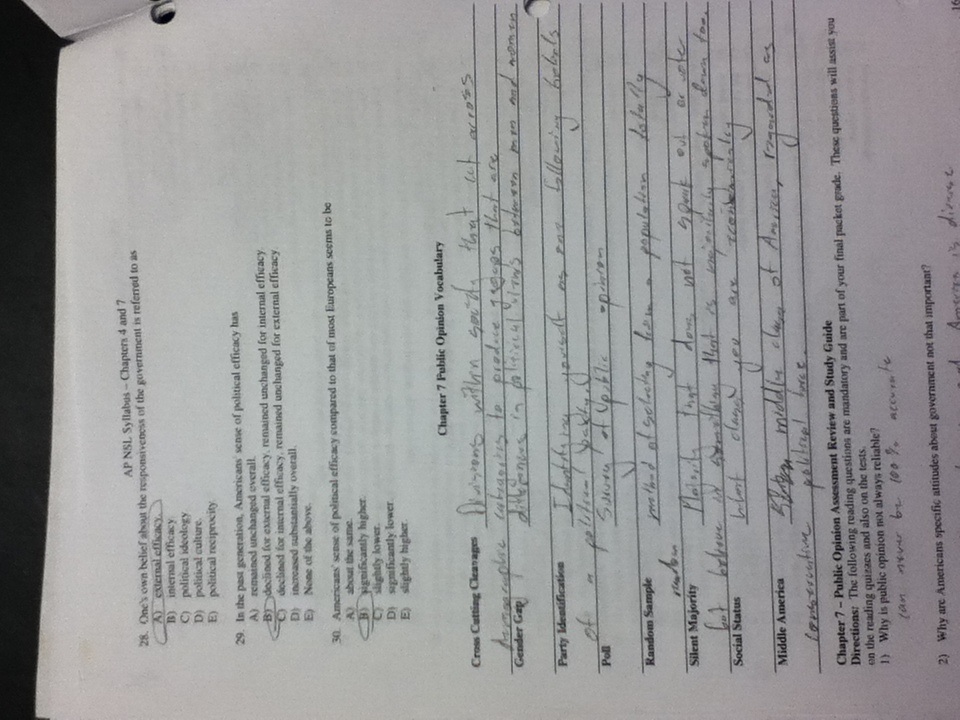 AP NSL Syllabus – Chapters 4 and 7
28. One's own belief about the responsiveness of the government is referred to as
A) external efficacy.
B) internal efficacy.
C) political ideology.
D) political culture.
E) political reciprocity.
29. In the past generation, Americans' sense of political efficacy has
A) remained unchanged overall.
B) declined for external efficacy, remained unchanged for internal efficacy.
C) declined for internal efficacy, remained unchanged for external efficacy.
D) increased substantially overall.
E) None of the above.
30. Americans' sense of political efficacy compared to that of most Europeans seems to be
A) about the same.
B) significantly higher.
C) slightly lower.
D) significantly lower.
E) slightly higher.
Chapter 7 Public Opinion Vocabulary
Cross Cutting Cleavages Divisions within society that cut across
demographic categories to produce groups that are
Gender Gap differences in political views between men and women
Party Identification Identifying yourself as one following beliefs
of a political party.
Poll Survey of public opinion
Random Sample method of selecting from a population totally
random
Silent Majority Majority that does not speak out or vote
but believe in something that is majoritily spoken down too.
Social Status What class you are economically
Middle America middle class of America, regarded as
conservative political force.
Chapter 7 – Public Opinion Assessment Review and Study Guide
Directions: The following reading questions are mandatory and are part of your final packet grade. These questions will assist you
on the reading quizzes and also on the tests.
1) Why is public opinion not always reliable?
can never be 100% accurate
2) Why are Americans specific attitudes about government not that important?
America is diverse
16